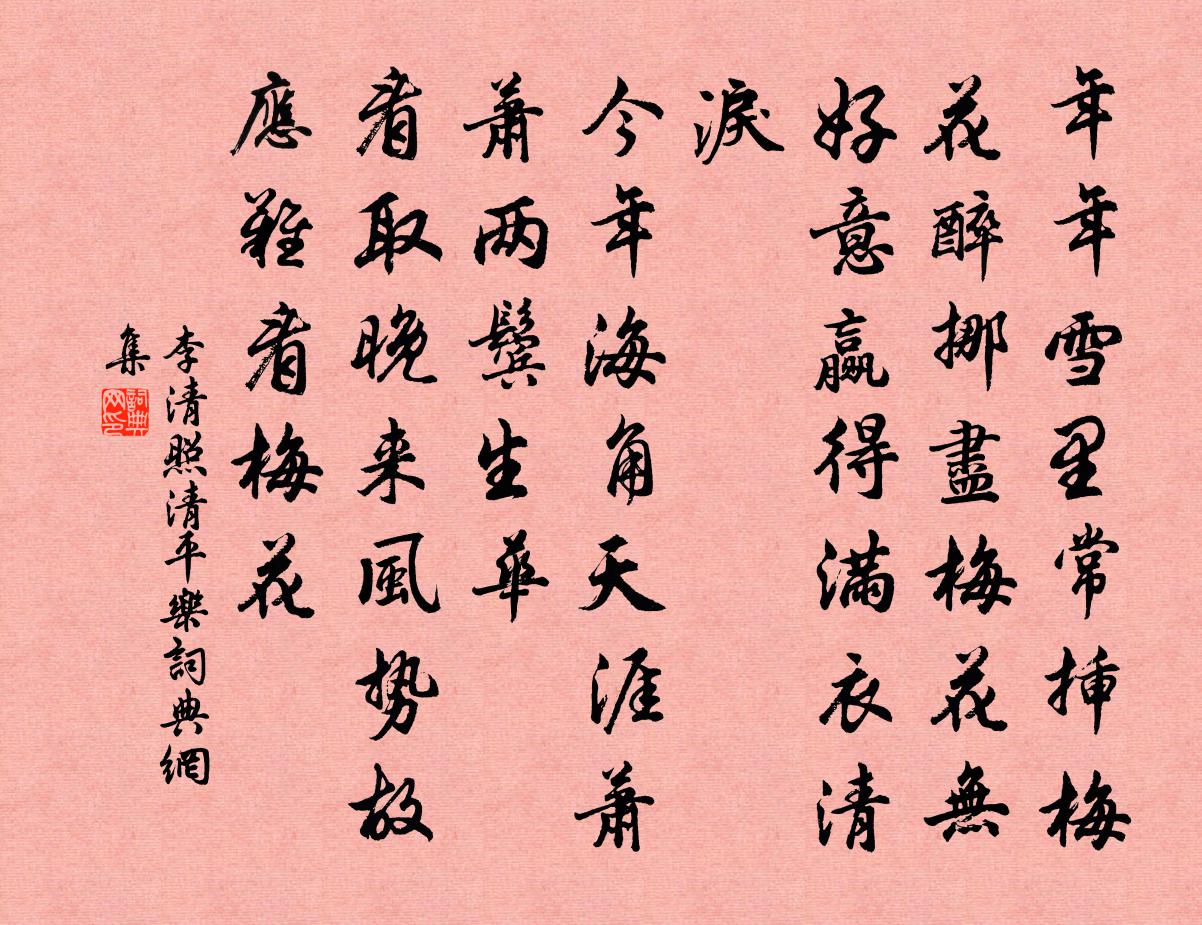 年年雪里常挿梅
花醉挪盡梅花無
好意贏得滿衣清
淚
今年海角天涯蕭
蕭两鬓生華
看取晚来風势故
應難看梅花
李清照清平樂詞典網
集
詞典网印